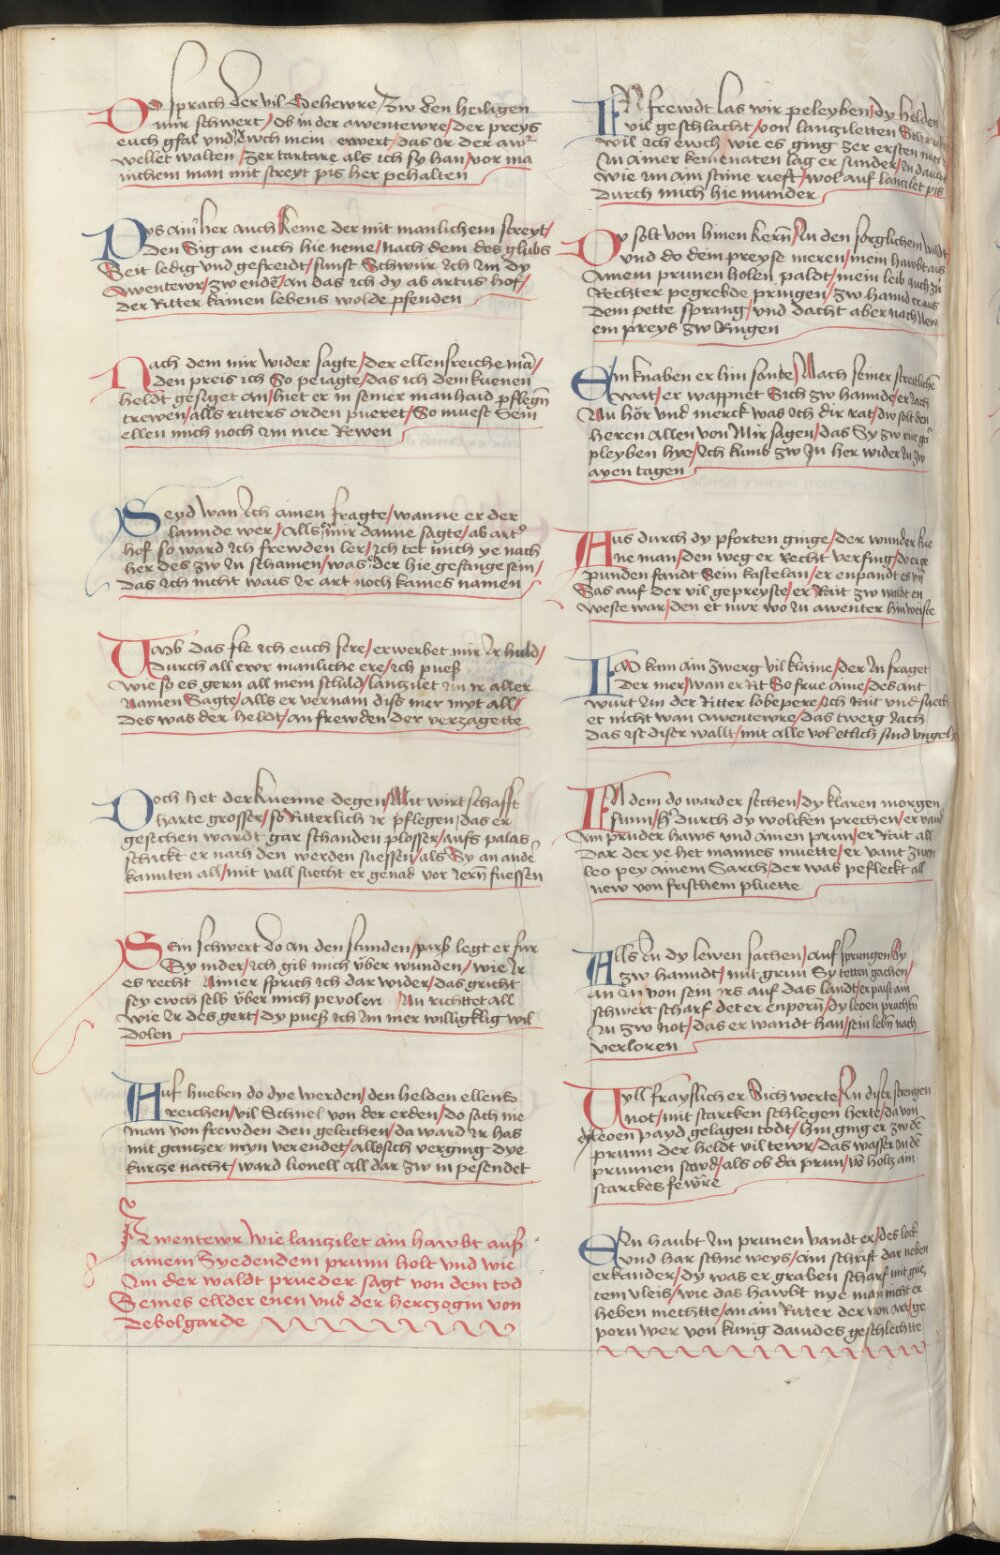 Do sprach der vil Gehewre / Zw den heiligen
mir schwert / Ob in der awentewre / der preys
euch gfal vnd ewch mein erwert / das ir der aw
wellet walten / Zer tartare als ich sy han / vor ma
nichem man mit streyt pis her pehalten
Obs aim her auch keme der mit manlichem streyt /
Den Sig an euch hie neme / nach dem des glubs
Seit ledig vnd gefreidt / sunst Schwur ich im dy
Awentewr / zw ende / an das ich dy ab artus hof /
der Ritter kainen lebens wolde pfenden
Nach dem mir wider sagte / der ellensreiche mā /
den preis ich So peiagte / das ich dem kuenen
heldt gesiget an / hiet er in seiner manhaid pflegn
trewen / alls ritters orden pueret / So muest Sein
ellen mich noch im mer Rewen
Seyd wan ich ainen fragte / wanne er der
lannde wer / Alls er mir danne sagte / ab art
hof so ward ich frewden ler / ich tet mich ye nach
her des zw in schamen / was der hie gefangē sein /
das ich nicht wais ir art noch kaines namen
Vmb das fle ich euch sere / erwerbet mir ir huld /
Durch all ewr manliche ere / ich pueß
wie so es gern all mein schuld / lanzilet im ir aller
Namen Sagte / alls er vernam diss mer myt all /
des was der heldt / an frewden der verzagette
Doch het der kuenne degen / Mit wirtschafft
harte grosser / so Ritterlich ir pflegen / das er
gesechen wardt gar schanden plosser / aufs palas
schickt er nach den werden suessen / als Sy an ande
kannten all / mit vall suecht er genad vor iern fuessen
Sein schwert do an den stunden / parß legt er fur
Sy nider / ich gib mich über wunden / wie ir
es recht Nimer sprich ich dar wider / das gericht
sey ewch selb über mich pevolen Nu richttet all
wie ir des gert / dy pueß ich im mer willigklig wil
dolen
Auf hueben do dye werden / den helden ellens
reichen / vil Schnel von der erden / do sach nie
man von frewden den geleichen / da ward ir has
mit gantzer myn verendet / allß sich verging dye
kurze nacht / ward lionell all dar zw in pesendet
Awentewr wie lanzilet ain hawbt auß
ainem Syedendem prunn holt vnd wie
Im der waldt prueder sagt von dem tod
Seines ellder enen vnd der herczogin von
Debolgarde
In frewdt las wir peleyben / dy helden
vil geschlacht / von lanziletten
wil ich ewch wie es ging zer ersten nacht
In ainer kemenaten lag er sunder / in daucht
wie im ain stime rieft / wol auf lanzilet pis
durch mich hie munder
Du solt von hinen kern / In den sorglichem waldt
Vnd do dein preyse meren / mein hawbt aus
Ainem prunen holen paldt / mein leib auch zu
Rechter pegrebde pringen / zw hannd er aus
dem pette sprang / vnd dacht aber nach new
em preys zw Ringen
Ein knaben er hin sante / Nach seiner streitlichē
wat / er wappnet Sich zw hannde / er iach
Nu hör vnd merck was ich dir rat / dw solt den
heren Allen von Mir sagen / das Sy zw
pleyben hye / ich kumb zw In her wider in zw
ayen tagen
Aus durch dy pforten ginge / der wunder kue
ne man / den weg er Recht verfing / do er ge
punden fandt Sein kastelan / er enpandt es vn
Sas auf der vil gepreyste / er Rait zw waldt en
weste war / den et nur wo in awenter hin weiste
Do kom ain zwerg vil klaine / der In fraget
der mer / wan er Rit So frue aine / des ant
wurt im der Ritter lobepere / ich Rait vnd suech
et nicht wan awentewre / das twerg iach
das ist diser wallt / mit alle vol etlich sind vngeh
In dem do ward er sechen / dy klaren morgen
sunn / si durch dy wolcken prechen / er vand
ain pruder haws vnd ainen prun / er Rait all
dar der ye het mannes muette / er vant zwen
leo pey ainem Sarch / der was pefleckt all
new von frischem pluette
Alls in dy lewen sachen / auf sprungen Sy
zw hanndt / mit grim Sy tetten gachen /
an in von sein irs auf das landt / er paist am
schwert scharf det er enporn / dy leoen prachtn
in zw not / das er wandt han / sein lebn nach
verloren
Vyll frayslich er Sich werte / In diser strengen
not / mit starcken schlegen herte / da von
dy leoen payd gelagen todt / hin ging er zw dē
prunn der heldt vil tewr / das wasser in dē
prunnen sawd / als ob da prun / vō holtz ain
starckes fewre
Ein haubt im prunen vandt er / des lock
Vnd har schne weys / ain schrift dar neben
erkander / dy was er graben scharf mit gue
tem vleis / wie das hawbt nye man nicht er
heben mechtte / an ain Ritter der von art ge
porn wer von kunig dauides geschlechtte